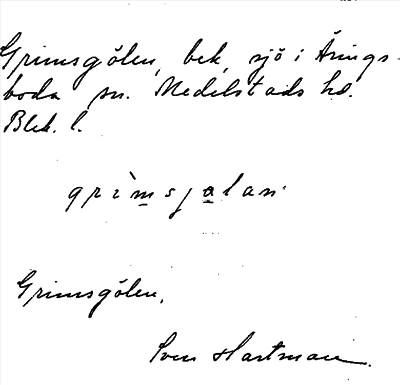 Grimsgölen, bek. sjö i Årings-
boda sn. Medelstads hd.
Blek. l.
grìmsjalan.
Grimsgölen.
Sven Hartman.